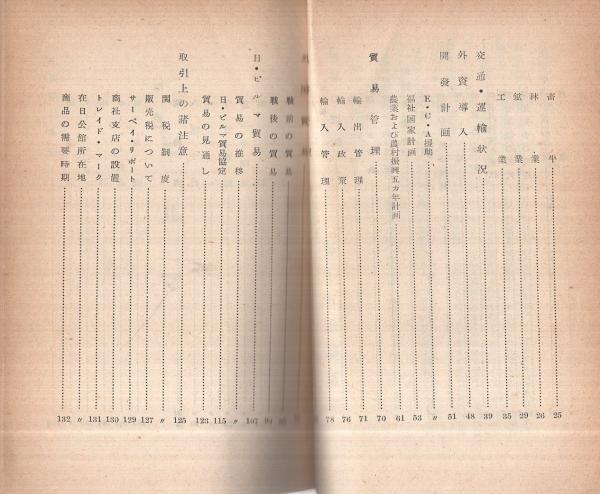 畜牛……25
林業……26
鉱業……29
工業……35
交通・運輸狀況……39
外資導入……48
開發計画……51
E・C・A援助……〃
福祉国家計画……53
農業および農村振興五カ年計画……61
貿易管理……70
輸出管理……71
輸入政策……76
輸入管理……78
戰前の貿易
戰後の貿易
日・ビルマ貿易……107
貿易の推移……〃
日・ビルマ貿易協定……115
貿易の見通し……123
取引上の諸注意……125
関税制度……〃
販売税について……127
サーベイ・リポート……129
商社支店の設置……130
トレイド・マーク……131
在日公館所在地……〃
商品の需要時期……132